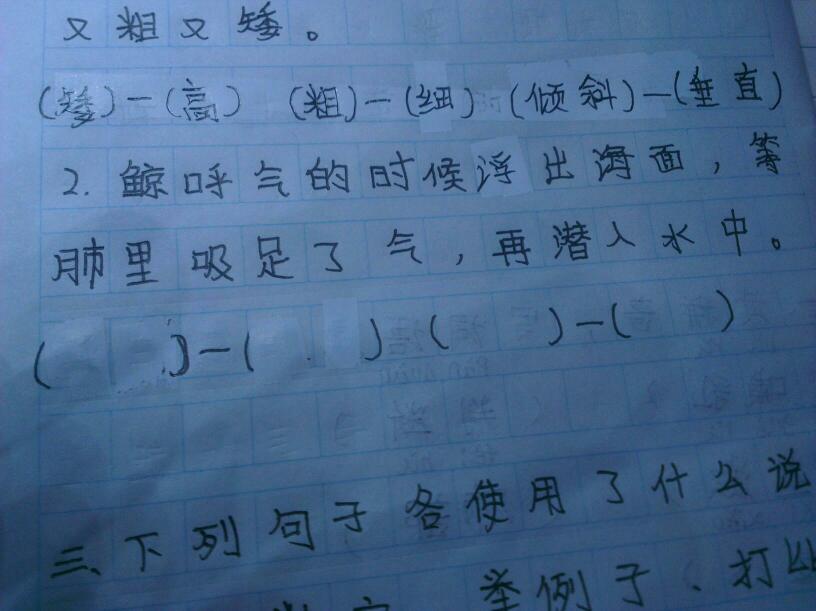 又粗又矮。
(矮)—(高) (粗)—(细) (倾斜)—(垂直)
2. 鲸呼气的时候浮出海面，等
肺里吸足了气，再潜入水中。
( )—( ) ( )—( )
三、下列句子各使用了什么说
举例子、打比